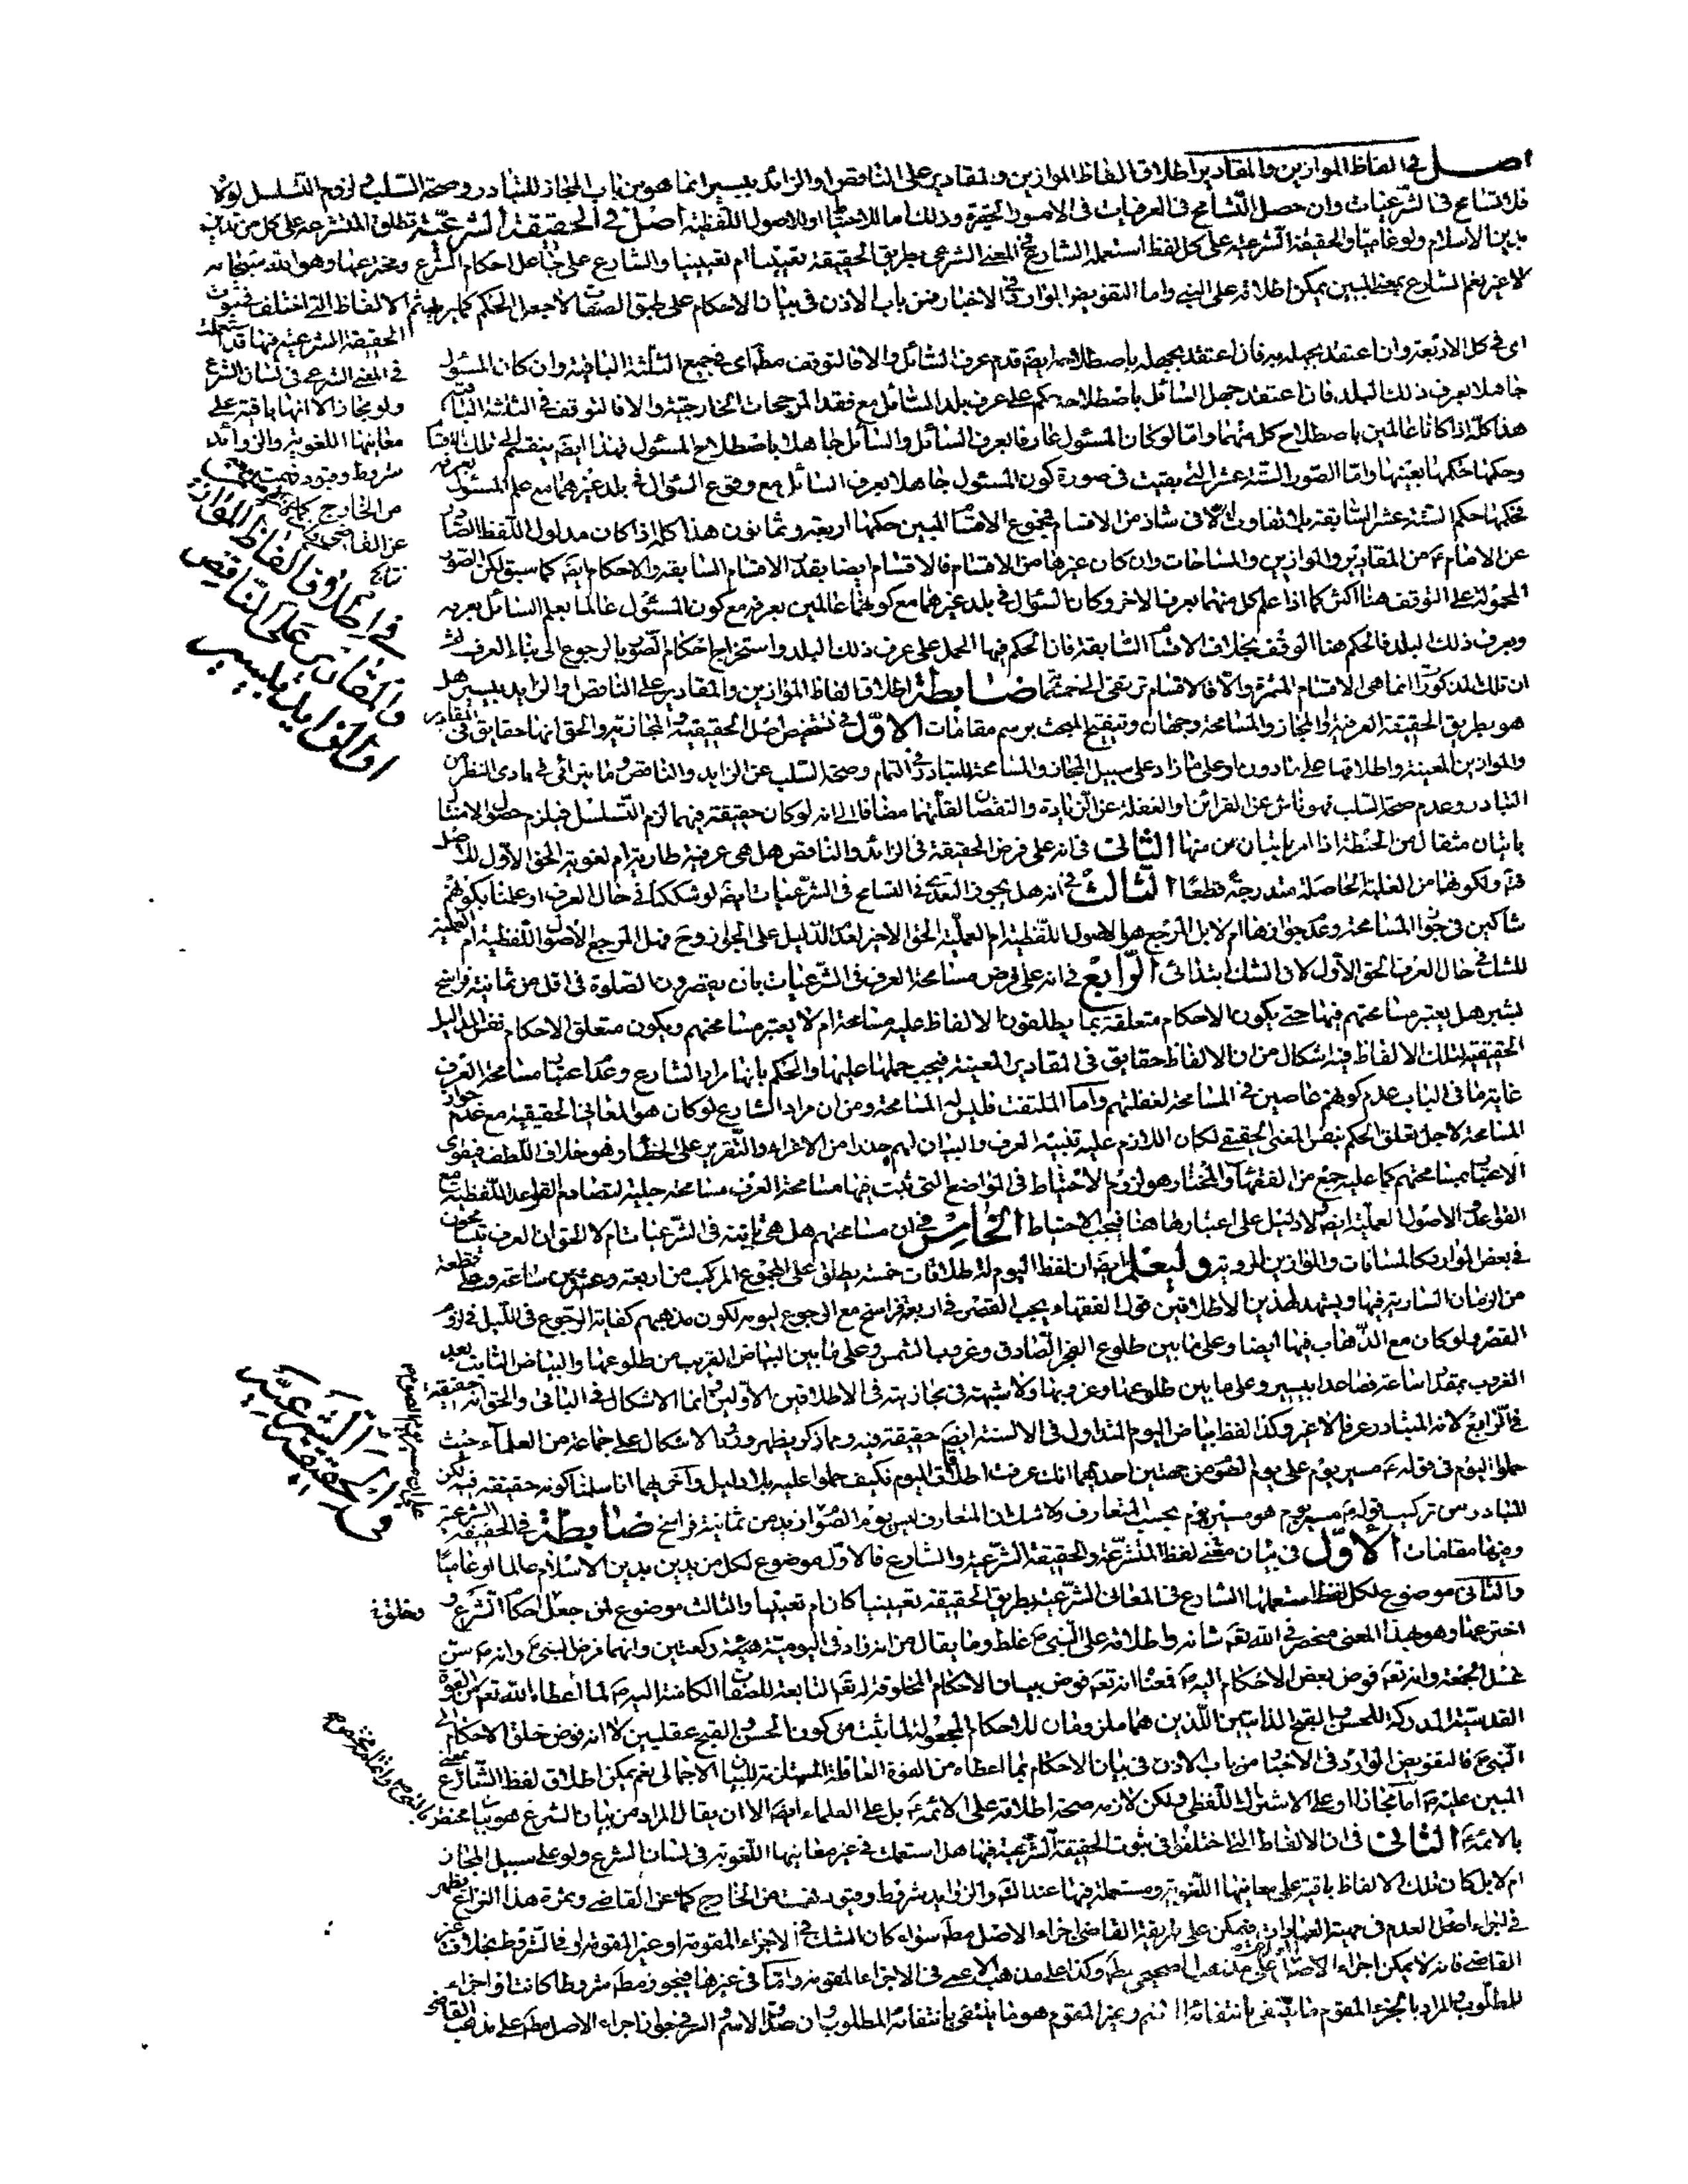 اصل في الفاظ الموازين والمقادير اطلاق الفاظ الموازين والمقادير على الناقص او الزائد بيسير انما هو من باب المجاز للتبادر وصحة السلب لزوم التسلسل لولا
فلا تسامح في الشرعيات وان حصل التسامح في العرفيات في الامور الحقيرة وذلك اما للاحتياط او للاصول اللفظية اصل في الحقيقة الشرعية تطلق المتشرعة على كل من تدين
بدين الاسلام ولو عاميا والحقيقة الشرعية على كل لفظ استعمله الشارع في المعنى الشرعي بطريق الحقيقة تعيينا ام تعينيا والشارع على جاعل احكام الشرع ومخترعها وهو الله سبحانه
لا غير نعم الشارع بمعنى المبين يمكن اطلاقه على النبي واما التفويض الوارد في الاخبار فمن باب الاذن في بيان الاحكام على طبق الصفات لا جعل الحكم ثم الالفاظ التي اختلف في ثبوت
الحقيقة الشرعية فيها قد استعملت
في المعنى الشرعي في لسان الشرع
ولو مجازا لا انها باقية على
معانيها اللغوية والزوائد
شروط وقيود فهمت
من الخارج
عن القاضي
في اطلاق الفاظ الموازين
والمقادير على الناقص
او الزايد بيسير
اي في كل الاربعة وان اعتقد بجهله به فان اعتقد بجهله باصطلاحه ايضا قدم عرف السائل والا فالتوقف مطلقا اي في جميع الثلثة الباقية وان كان المسئول
جاهلا بعرف ذلك البلد فان اعتقد جهل السائل باصطلاحه يحكم على عرف بلد السائل مع فقد المرجحات الخارجية والا فالتوقف في الثلثة الباقية
هذا كله اذا كانا عالمين باصطلاح كل منهما واما لو كان المسئول عارفا بعرف السائل والسائل جاهلا باصطلاح المسئول فهذا ايضا ينقسم الى تلك الاقسام
وحكمها حكمها بعينها واما الصور الستة عشر التي بقيت في صورة كون المسئول جاهلا بعرف السائل مع وقوع السؤال في بلد غيرهما مع علم المسئول بعرفه
فحكمها حكم الستة عشر السابقة بلا تفاوت الا في شاذ من الاقسام فمجموع الاقسام المبين حكمها اربعة وثمانون هذا كله اذا كان مدلول اللفظ الصادر
عن الامام من المقادير والموازين والمساحات وان كان غيرها من الاقسام فالاقسام ايضا بقدر الاقسام السابقة والاحكام ايضا كما سبق لكن الصور
المحمولة على التوقف هنا اكثر كما اذا علم كل منهما بعرف الاخر وكان السؤال في بلد غيرهما مع كونهما عالمين بعرفه مع كون المسئول عالما بعلم السائل بعرفه
وبعرف ذلك البلد فالحكم هنا الوقف بخلاف الاقسام السابقة فان الحكم فيها الحمل على عرف ذلك البلد واستخراج احكام الصور بالرجوع الى بناء العرف
ان تلك المذكورة انما هي الاقسام المثمرة والا فالاقسام ترتقي الى ضابطة اطلاق الفاظ الموازين والمقادير على الناقص او الزايد بيسير هل
هو بطريق الحقيقة العرفية او المجاز والمسامحة وجهان وتنقيح المبحث برسم مقامات الاول في تشخيص اصل الحقيقية والمجازية والحق انها حقايق في المقادير
والموازين المعينة واطلاقها على ما دون او على ما زاد على سبيل المجاز والمسامحة للتبادر في التمام وصحة السلب عن الزايد والناقص وما يترائى في بادي النظر من
التبادر وعدم صحة السلب فهو ناش عن القرائن او الغفلة عن الزيادة والنقصان مضافا الى انه لو كان حقيقة فيهما لزم التسلسل فيلزم حصول الامتثال
باتيان مثقال من الحنطة اذا امر باتيان من منها الثاني في انه على فرض الحقيقة في الزائد والناقص هل هي عرفية طارية ام لغوية الحق الاول للاصل
فتم ولكونها من الغلبة الحاصلة متدرجة قطعا الثالث في انه هل يجوز التعدي في التسامح في الشرعيات ايضا لو شككنا في حال العرف او علمنا بكونهم
شاكين في جواز المسامحة وعدم جوازها ام لا بل المرجع هو الاصول اللفظية ام العملية الحق الاخير لعدم الدليل على الجواز وح فهل المرجع الاصول اللفظية ام العملية
للشك في حال العرف الحق الاول لان الشك ابتدائي الرابع في انه على فرض مسامحة العرف في الشرعيات بان يقصرون الصلوة في اقل من ثمانية فراسخ
بشبر هل يعتبر مسامحتهم فيها حتى يكون الاحكام متعلقة بما يطلقون الالفاظ عليه مسامحة ام لا يعتبر مسامحتهم ويكون متعلق الاحكام نفس المداليل
الحقيقية لتلك الالفاظ فيه اشكال من ان الالفاظ حقايق في المقادير المعينة فيجب حملها عليها والحكم بانها مراد الشارع وعدم اعتبار مسامحة العرف
غاية ما في الباب عدم كونهم عاصين في المسامحة لغفلتهم واما الملتفت فليس له المسامحة ومن ان مراد الشارع لو كان هو المعاني الحقيقية مع عدم جواز
المسامحة لاجل تعلق الحكم بنفس المعنى الحقيقي لكان اللازم عليه تنبيه العرف والبيان لهم حذرا من الاغراء والتقرير على الخطاء وهو خلاف اللطف فيقوى
الاعتبار بمسامحتهم كما عليه جمع من الفقهاء والمختار هو لزوم الاحتياط في المواضع التي ثبت فيها مسامحة العرف مسامحة جلية لتصادم القواعد اللفظية مع
القواعد الاصول العملية ايضا لا دليل على اعتبارها هنا فيجب الاحتياط الخامس في ان مسامحتهم هل هي ثابتة في الشرعيات ام لا الحق ان العرف تسامحون
في بعض الموارد كالمسافات والموازين المروية وليعلم ايضا ان لفظ اليوم له اطلاقات خمسة يطلق على المجموع المركب من اربعة وعشرين ساعة وعلى قطعة
من الزمان السارية فيها ويشهد لهذين الاطلاقين قول الفقهاء يجب القصر في اربعة فراسخ مع الرجوع ليومه لكون مذهبهم كفاية الرجوع في الليل في لزوم
القصر ولو كان مع الذهاب فيها ايضا وعلى ما بين طلوع الفجر الصادق وغروب الشمس وعلى ما بين البياض القريب من طلوعها والبياض الثابت بعد
الغروب بمقدار ساعة فصاعدا بيسير وعلى ما بين طلوعها وغروبها ولا شبهة في مجازيته في الاطلاقين الاولين وانما الاشكال في الباقي والحق انه حقيقة
في الرابع لانه المتبادر عرفا لا غير وكذا لفظ بياض اليوم المتداول في الالسنة ايضا حقيقة فيه ومما ذكر يظهر ورود الاشكال على جماعة من العلماء حيث
حملوا اليوم في قوله مسير يوم على يوم الصوم من جهتين احديهما انك عرفت اطلاق اليوم فكيف حملوا عليه بلا دليل واخريهما انا سلمنا كونه حقيقة فيه لكن
المتبادر من تركيب قوله مسير يوم هو مسير يوم بحسب المتعارف ولا شك ان المتعارف ليس يوم الصوم ازيد من ثمانية فراسخ ضابطة في الحقيقة الشرعية
وفيها مقامات الاول في بيان معنى لفظ المتشرعة والحقيقة الشرعية والشارع فالاول موضوع لكل من يدين بدين الاسلام عالما او عاميا
والثاني موضوع لكل لفظ استعملها الشارع في المعاني الشرعية بطريق الحقيقة تعيينيا كان ام تعينيا والثالث موضوع لمن جعل احكام الشرع و
اخترعها وهو بهذا المعنى منحصر في الله تعالى شانه واطلاقه على النبي غلط وما يقال من انه زاد في اليومية هيئة ركعتين وانهما فرض النبي وانه سن
غسل الجمعة وانه تعالى فوض بعض الاحكام اليه فمعناه انه تعالى فوض بيان الاحكام المخلوقة له تعالى التابعة للصفات الكامنة اليه لما اعطاه الله تعالى من القوة
القدسية المدركة للحسن والقبح الذاتيين اللذين هما ملزومان للاحكام المجعولة لما ثبت من كون الحسن والقبح عقليين لا انه فوض خلق الاحكام الى
النبي فالتفويض الوارد في الاخبار من باب الاذن في بيان الاحكام بما اعطاه من القوة العاقلة المستلزمة للبيان الاجمالي نعم يمكن اطلاق لفظ الشارع بمعنى
المبين عليه اما مجازا او على الاشتراك اللفظي ولكن لازمه صحة اطلاقه على الائمة بل على العلماء ايضا الا ان يقال المراد من بيان الشرع هو بيان مختصر
بالائمة الثاني في ان الالفاظ التي اختلفوا في ثبوت الحقيقة الشرعية فيها هل استعملت في غير معانيها اللغوية في لسان الشرع ولو على سبيل المجاز
ام لا بل كان تلك الالفاظ باقية على معانيها اللغوية ومستعملة فيها عنده والزوايد شروط وقيود فهمت من الخارج كما عن القاضي وثمرة هذا النزاع تظهر
في اجراء اصل العدم في مهية العبادات فيمكن على طريقة القاضي اجراء الاصل مطلقا سواء كان الشك في الاجزاء المقومة او غير المقومة او في الشروط بخلاف غير
القاضي فانه لا يمكن اجراء الاصل على مذهب الصحيحي مطلقا وكذا على مذهب الاعمي في الاجزاء المقومة واما في غيرها فيجوز مطلقا شروطا كانت او اجزاء
للمطلوب والمراد بالجزء المقوم ما ينتفي بانتفائه الاسم وبغير المقوم هو ما ينتفي بانتفائه المطلوب وان صدق الاسم السر في جواز اجراء الاصل مطلقا على مذهب القاضي
في الحقيقة الشرعية
ومخلوقة